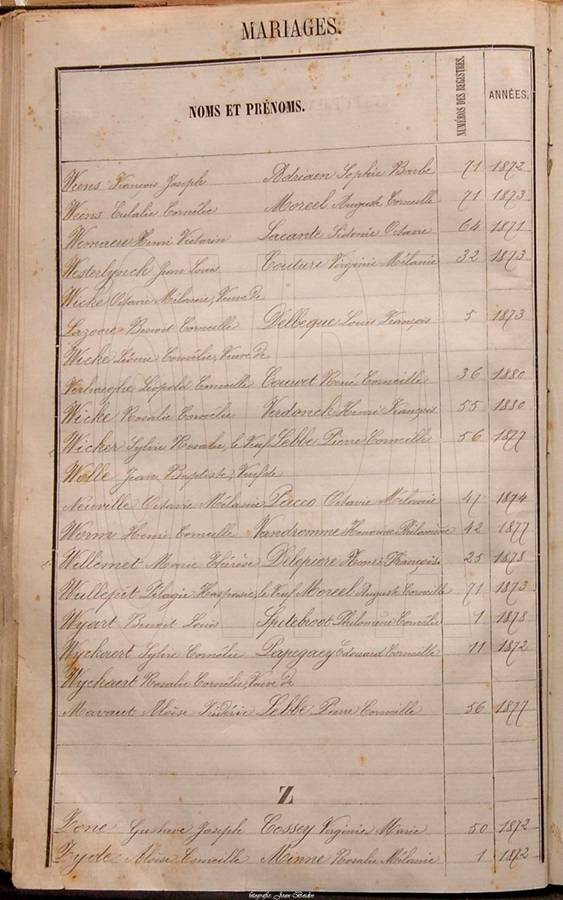 MARIAGES.
NOMS ET PRÉNOMS. NUMÉROS DES REGISTRES. ANNÉES.
Weens François Joseph Adriaen Sophie Barbe 71 1872
Weens Eulalie Cornélie Moreel Auguste Corneille 71 1873
Wemaere Henri Victorin Lacante Sidonie Octavie 64 1871
Westerlynck Jean Louis Couture Virginie Mélanie 32 1873
Wicke Octavie Mélanie, Veuve de
Lazoore Benoit Corneille Delbeque Louis François 5 1873
Wicke Léonie Cornélie, Veuve de
Verhaeghe Léopold Corneille Couvet René Corneille 36 1880
Wicke Rosalie Cornélie Verdonck Henri François 55 1880
Wicker Sylvie Rosalie, le Veuf Lebbe Pierre Corneille 56 1877
Wolle Jean Baptiste, Veuf de
Neuville Octavie Mélanie Pacco Octavie Mélanie 47 1874
Worm Henri Corneille Vandromme Honorine Philomène 42 1877
Willemet Marie Thérèse Delepiere Henri François 25 1878
Wullepit Pélagie le Veuf Moreel Auguste Corneille 71 1873
Wyart Benoit Louis Spitebroot Philomène Cornélie 1 1878
Wyckaert Sylvie Cornélie Papegaey Edouard Corneille 11 1872
Wyckaert Rosalie Cornélie, Veuve de
Mavaut Aloïse Frédéric Lebbe Pierre Corneille 56 1877
Z
Zone Gustave Joseph Cossey Virginie Marie 50 1872
Zyde Aloïse Corneille Minne Rosalie Mélanie 1 1872
fotografie: Joan